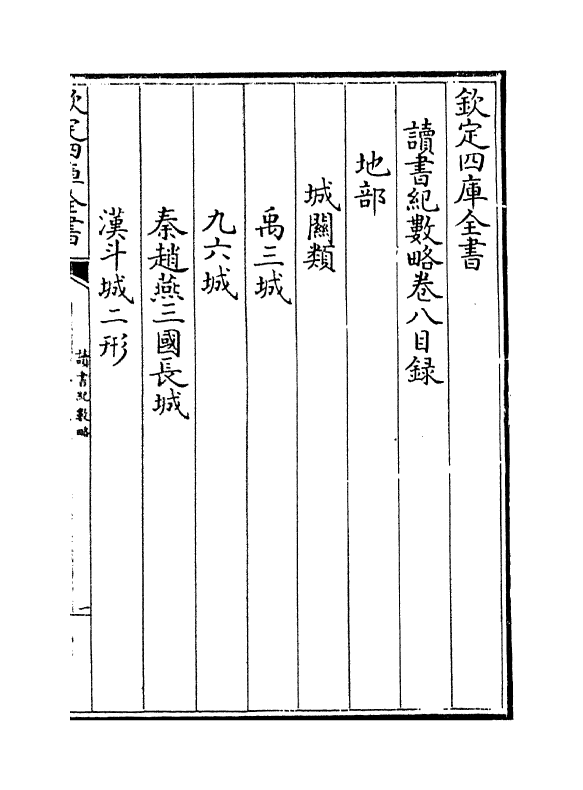 欽定四庫全書
讀書紀數略卷八目録
地部
城闗類
禹三城
九六城
秦趙燕三國長城
漢斗城二形
欽定四庫全書
讀書紀數略
一